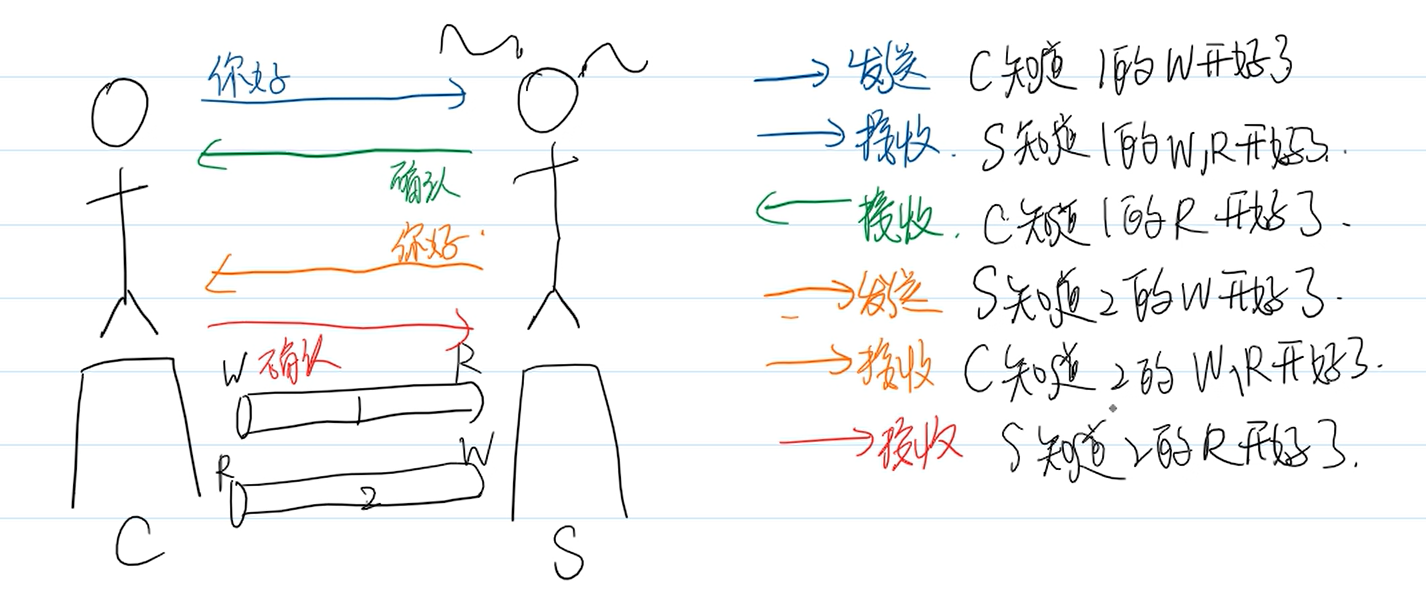 你好
确认
你好
确认
W R
1
R W
2
C S
发送 C知道1的W开好了
接收. S知道1的W,R开好了.
接收. C知道1的R开好了.
发送 S知道2的W开好了.
接收 C知道2的W,R开好了.
接收 S知道2的R开好了.